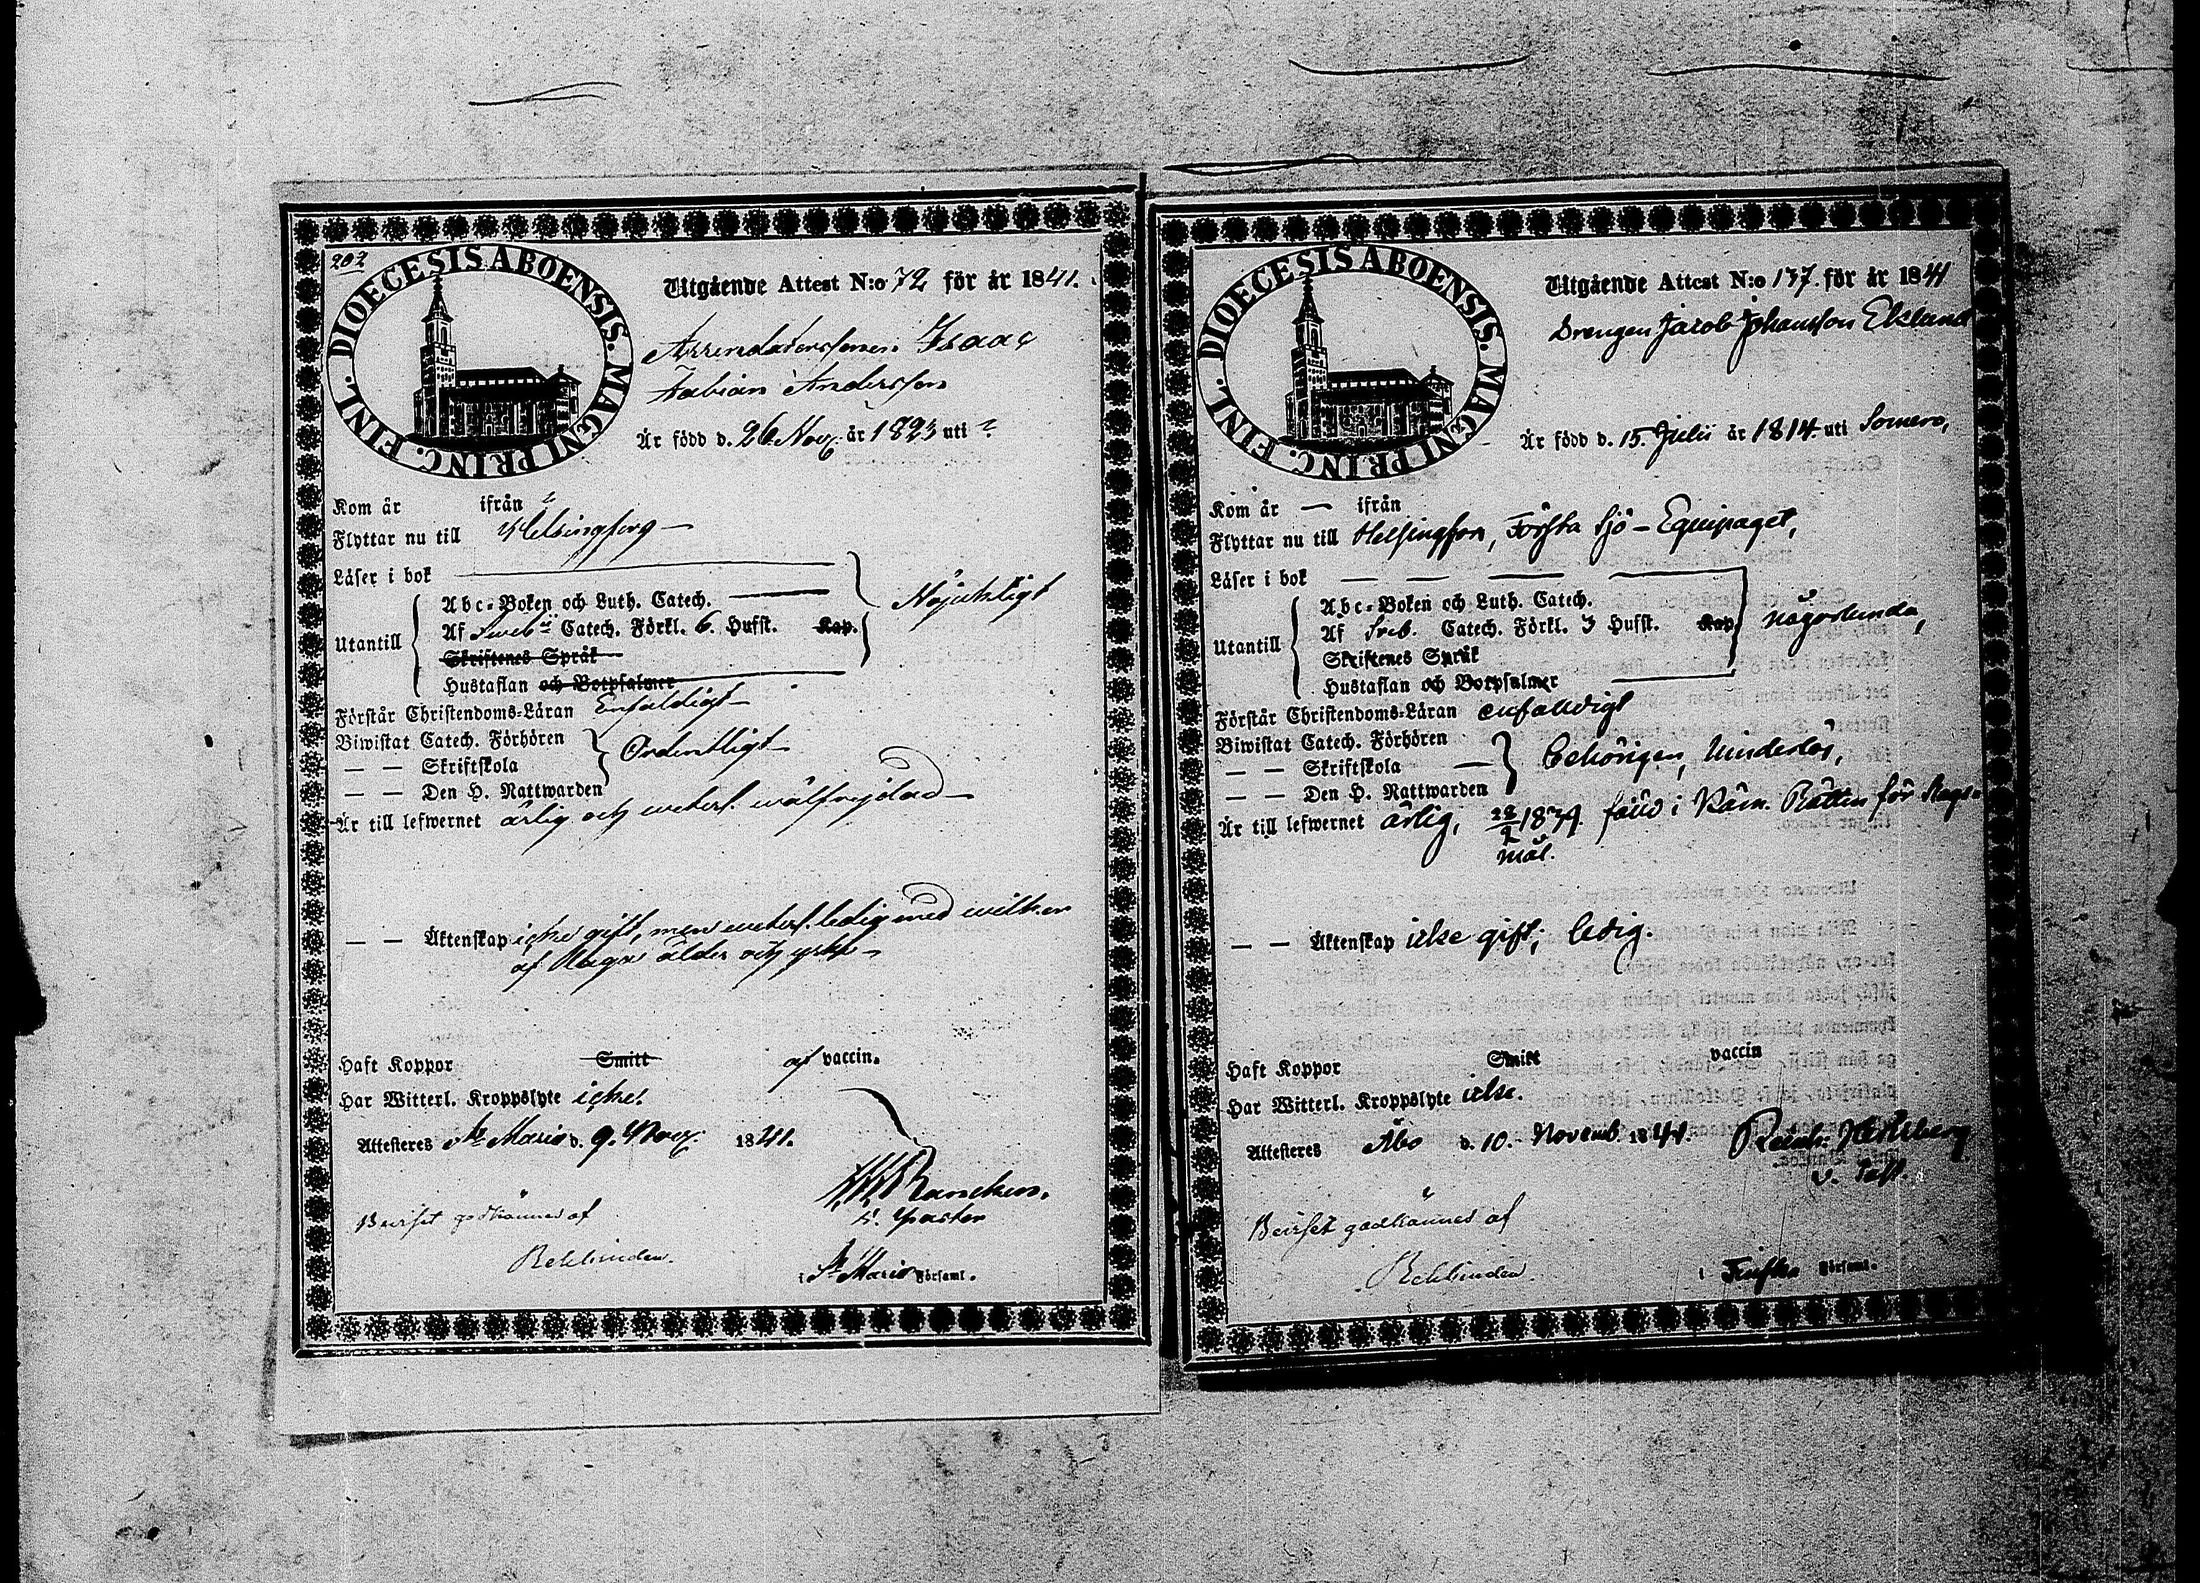 202
DIOECESIS ABOENSIS. MAGNI PRINC. FINL.
Utgående Attest N:o 72 för år 1841.
Arrendatorssonen Isaac
Fabian Andersson
Är född d. 26 Nov. år 1823 uti ?
Kom år ifrån ?
Flyttar nu till Helsingfors
Läser i bok
Abc-Boken och Luth. Catech.
Utantill Af Sveb. Catech. Förkl. 6. Hufst. Kap. Nöjaktligt
Skriftenes Språk
Hustaflan och Botpsalmer
Förstår Christendoms-Läran Enfaldigt
Biwistat Catech. Förhören
— — Skriftskola Ordentligt
— — Den H. Nattwarden
Är till lefwernet ärlig och veterl. wälfrejdad
— — Äktenskap icke gift, men veterl. ledig med wilkor
af Laga ålder och
Haft Koppor Smitt af vaccin.
Har Witterl. Kroppslyte icke.
Attesteres St Marie d. 9. Nov. 1841.
Rancken.
v. Pastor
Beviset godkännes af
Rehbinder.
i St Marie Församl.
DIOECESIS ABOENSIS. MAGNI PRINC. FINL.
Utgående Attest N:o 137. för år 1841
Drengen Jacob Johansson Eklund
Är född d. 15. Julii år 1814. uti Somero,
Kom år — ifrån
Flyttar nu till Helsingfors, Första Sjö-Equipaget,
Läser i bok — — — —
Abc-Boken och Luth. Catech.
Utantill Af Sveb. Catech. Förkl. 3 Hufst. Kap. någorlunda,
Skriftenes Språk
Hustaflan och Botpsalmer
Förstår Christendoms-Läran enfaldigt
Biwistat Catech. Förhören
— — Skriftskola behörigen,
— — Den H. Nattwarden
Är till lefwernet ärlig, född i Käm. Rätten för
mål.
— — Äktenskap icke gift; ledig.
Haft Koppor Smitt vaccin
Har Witterl. Kroppslyte icke.
Attesteres Åbo d. 10. Novemb. 1841.
v. Past.
Beviset godkännes af
Rehbinder.
i Finska Församl.